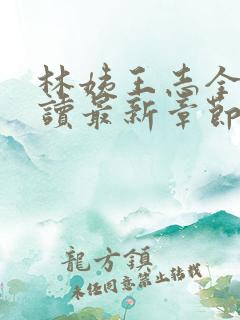 林姨王志全
讀最新章節
龍方鎮
未經同意禁止轉載